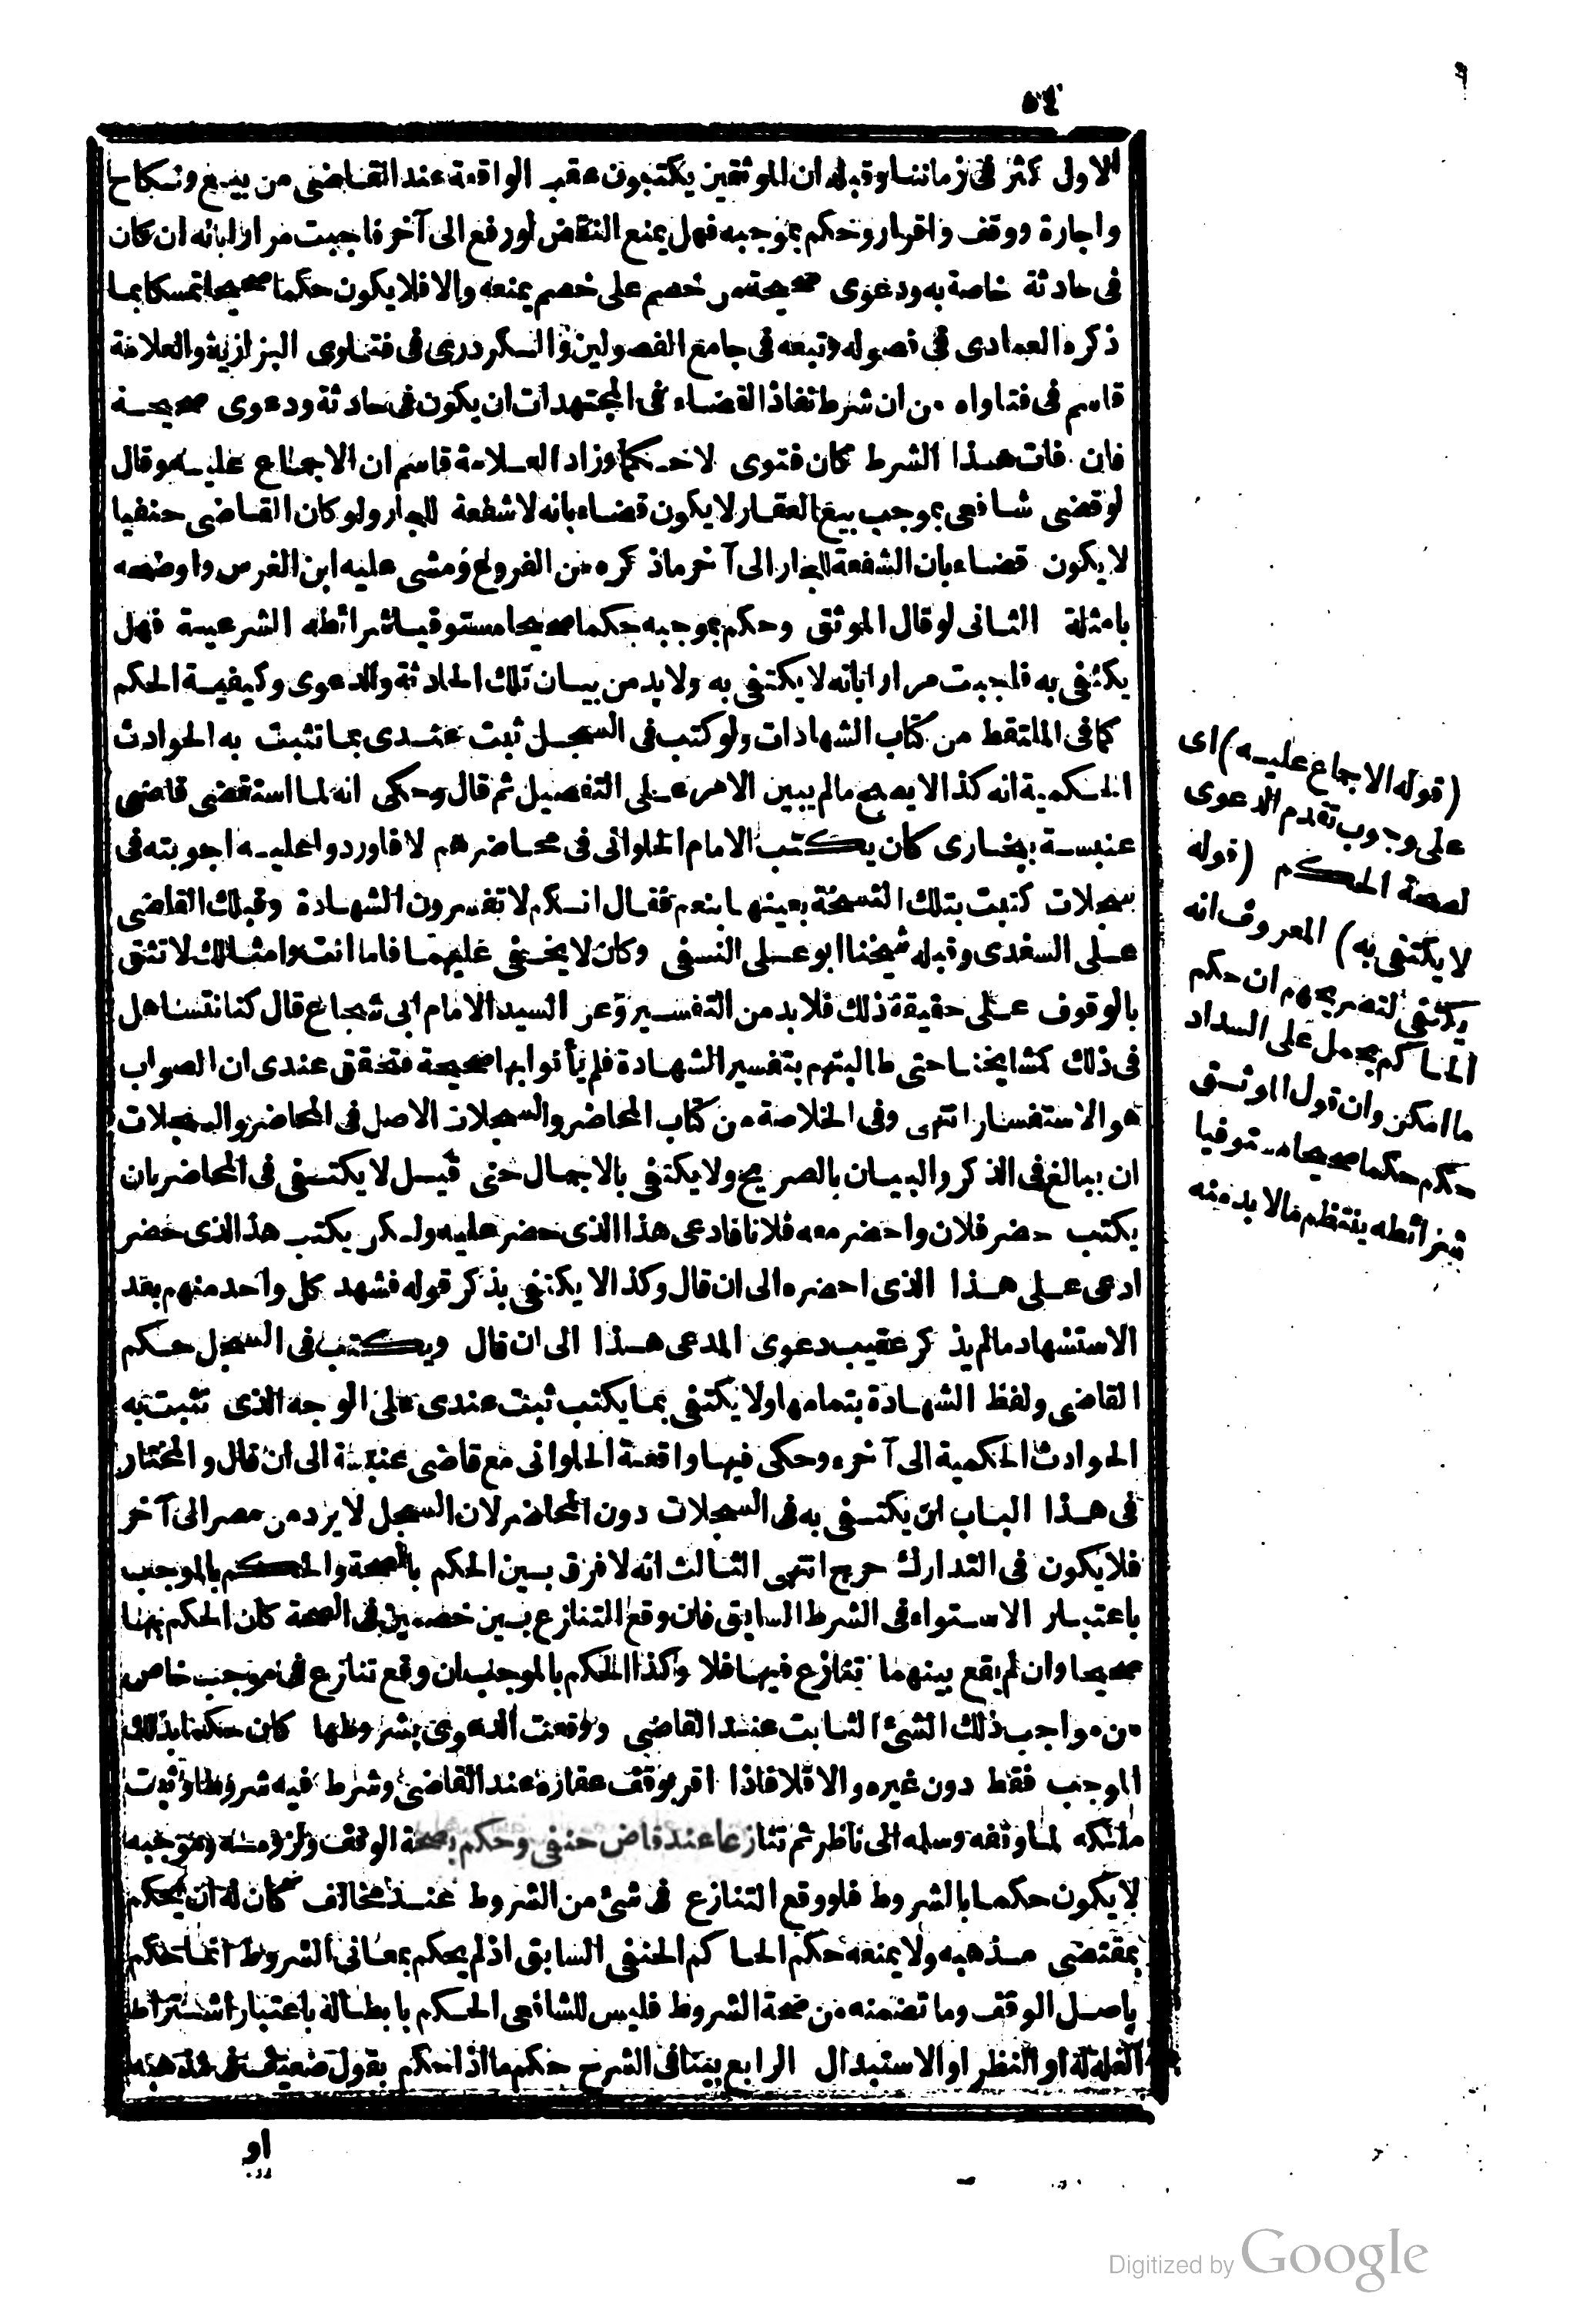 ٥٤
الاول كثر فى زماننا وقبله ان الموثقين يكتبون عقب الواقعة عند القاضى من بيع ونكاح
واجارة ووقف واقرار وحكم بموجبه فهل يمنع النقض لو رفع الى آخر فاجبت مرارا بانه ان كان
فى حادثة خاصة به ودعوى صحيحة من خصم على خصم يمنعه والا فلا يكون حكما صحيحا تمسكا بما
ذكره العمادى فى فصوله وتبعه فى جامع الفصولين والكردرى فى فتاوى البزازية والعلامة
قاسم فى فتاواه من ان شرط نفاذ القضاء فى المجتهدات ان يكون فى حادثة ودعوى صحيحة
فان فات هذا الشرط كان فتوى لا حكما وزاد العلامة قاسم ان الاجماع عليه وقال
لو قضى شافعى بموجب بيع العقار لا يكون قضاء بانه لا شفعة للجار ولو كان القاضى حنفيا
لا يكون قضاء بان الشفعة للجار الى آخر ما ذكره من الفروع ومشى عليه ابن الغرس واوضحه
بامثلة الثانى لو قال الموثق وحكم بموجبه حكما صحيحا مستوفيا شرائطه الشرعية فهل
يكتفى به فاجبت مرارا بانه لا يكتفى به ولا بد من بيان تلك الحادثة والدعوى وكيفية الحكم
كما فى الملتقط من كتاب الشهادات ولو كتب فى السجل ثبت عندى بما تثبت به الحوادث
الحكمية انه كذا لا يصح ما لم يبين الامر على التفصيل ثم قال وحكى انه لما استقضى قاضى
عنبسة ببخارى كان يكتب الامام الحلوانى فى محاضرهم لا فاوردوا عليه اجوبته فى
سجلات كتبت بتلك النسخة بعينها بنعم فقال انكم لا تفسرون الشهادة وقبلك القاضى
على السغدى وقبله شيخنا ابو على النسفى وكان لا يخفى عليهما فاما انت وامثالك لا تثق
بالوقوف على حقيقة ذلك فلا بد من التفسير وعن السيد الامام ابى شجاع قال كنا نتساهل
فى ذلك كمشايخنا حتى طالبتهم بتفسير الشهادة فلم يأتوا بها صحيحة فتحقق عندى ان الصواب
هو الاستفسار انتهى وفى الخلاصة من كتاب المحاضر والسجلات الاصل فى المحاضر والسجلات
ان يبالغ فى الذكر والبيان بالصريح ولا يكتفى بالاجمال حتى قيل لا يكتفى فى المحاضر بان
يكتب حضر فلان واحضر معه فلانا فادعى هذا الذى حضر عليه ولكن يكتب هذا الذى حضر
ادعى على هذا الذى احضره الى ان قال وكذا لا يكتفى بذكر قوله فشهد كل واحد منهم بعد
الاستشهاد ما لم يذكر عقيب دعوى المدعى هذا الى ان قال ويكتب فى السجل حكم
القاضى ولفظ الشهادة بتمامها ولا يكتفى بما يكتب ثبت عندى على الوجه الذى تثبت به
الحوادث الحكمية الى آخره وحكى فيها واقعة الحلوانى مع قاضى عنبسة الى ان قال والمختار
فى هذا الباب ان يكتفى به فى السجلات دون المحاضر لان السجل لا يرد من مصر الى آخر
فلا يكون فى التدارك حرج انتهى الثالث انه لا فرق بين الحكم بالصحة والحكم بالموجب
باعتبار الاستواء فى الشرط السابق فان وقع التنازع بين خصمين فى الصحة كان الحكم بها
صحيحا وان لم يقع بينهما تنازع فيها فلا وكذا الحكم بالموجب ان وقع تنازع فى موجب خاص
من مواجب ذلك الشئ الثابت عند القاضى ووقعت الدعوى بشروطها كان حكما بذلك
الموجب فقط دون غيره والا فلا فاذا اقر بوقف عقاره عند القاضى وشرط فيه شروطا وثبت
ملكه لما وقفه وسلمه الى ناظر ثم تنازعا عند قاض حنفى وحكم بصحة الوقف ولزومه وموجبه
لا يكون حكما بالشروط فلو وقع التنازع فى شئ من الشروط عند مخالف كان له ان يحكم
بمقتضى مذهبه ولا يمنعه حكم الحاكم الحنفى السابق اذ لم يحكم بمعانى الشروط انما حكم
باصل الوقف وما تضمنه من صحة الشروط فليس للشافعى الحكم بابطاله باعتبار اشتراط
الغلة له او النظر او الاستبدال الرابع بينا فى الشرح حكم ما اذا حكم بقول ضعيف فى مذهبه
او
(قوله الاجماع عليه) اى
على وجوب تقدم الدعوى
لصحة الحكم (قوله
لا يكتفى به) المعروف انه
يكتفى لتصريحهم ان حكم
الحاكم يحمل على السداد
ما امكن وان قول الموثق
حكم حكما صحيحا مستوفيا
شرائطه ينتظم ما لا بد منه
Digitized by Google